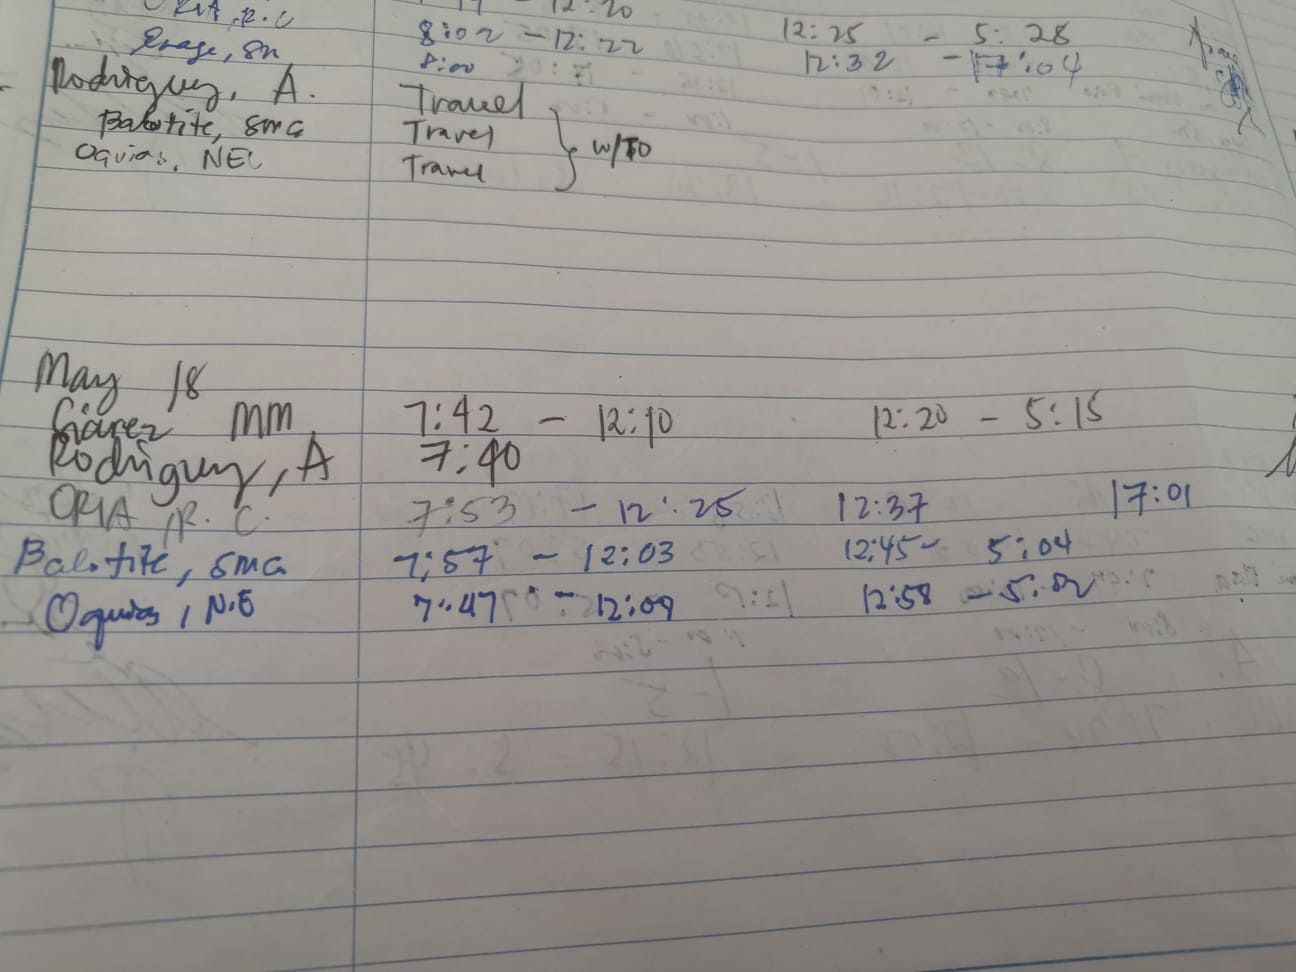 ORIA, R.C 12:20
Erage, SM 8:02 - 12:22 12:25 - 5:28
8:00 12:32 - 17:04
Rodriguez, A. Travel
Balotite, SMG Travel } w/TO
Oquias, NEC Travel
May 18
Suarez MM 7:42 - 12:10 12:20 - 5:15
Rodriguez, A 7:40
ORIA, R. C. 7:53 - 12:25 12:37 17:01
Balotite, SMG 7:57 - 12:03 12:45 - 5:04
Oquias, N.E 7:47 - 12:09 12:58 - 5:02